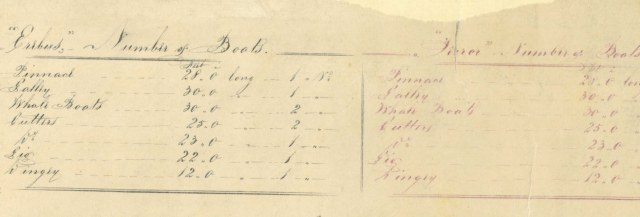 "Erebus," Number of Boats.
Feet
Pinnace 28.0 long 1 No
Galley 30.0 " 1
Whale Boats 30.0 2
Cutters 25.0 2
Do 23.0 1
Gig 22.0 1
Dingey 12.0 1
"Terror" Number of Boats
Feet
Pinnace 28.0 long
Galley 30.0
Whale Boats 30.0
Cutters 25.0
Do 23.0
Gig 22.0
Dingey 12.0